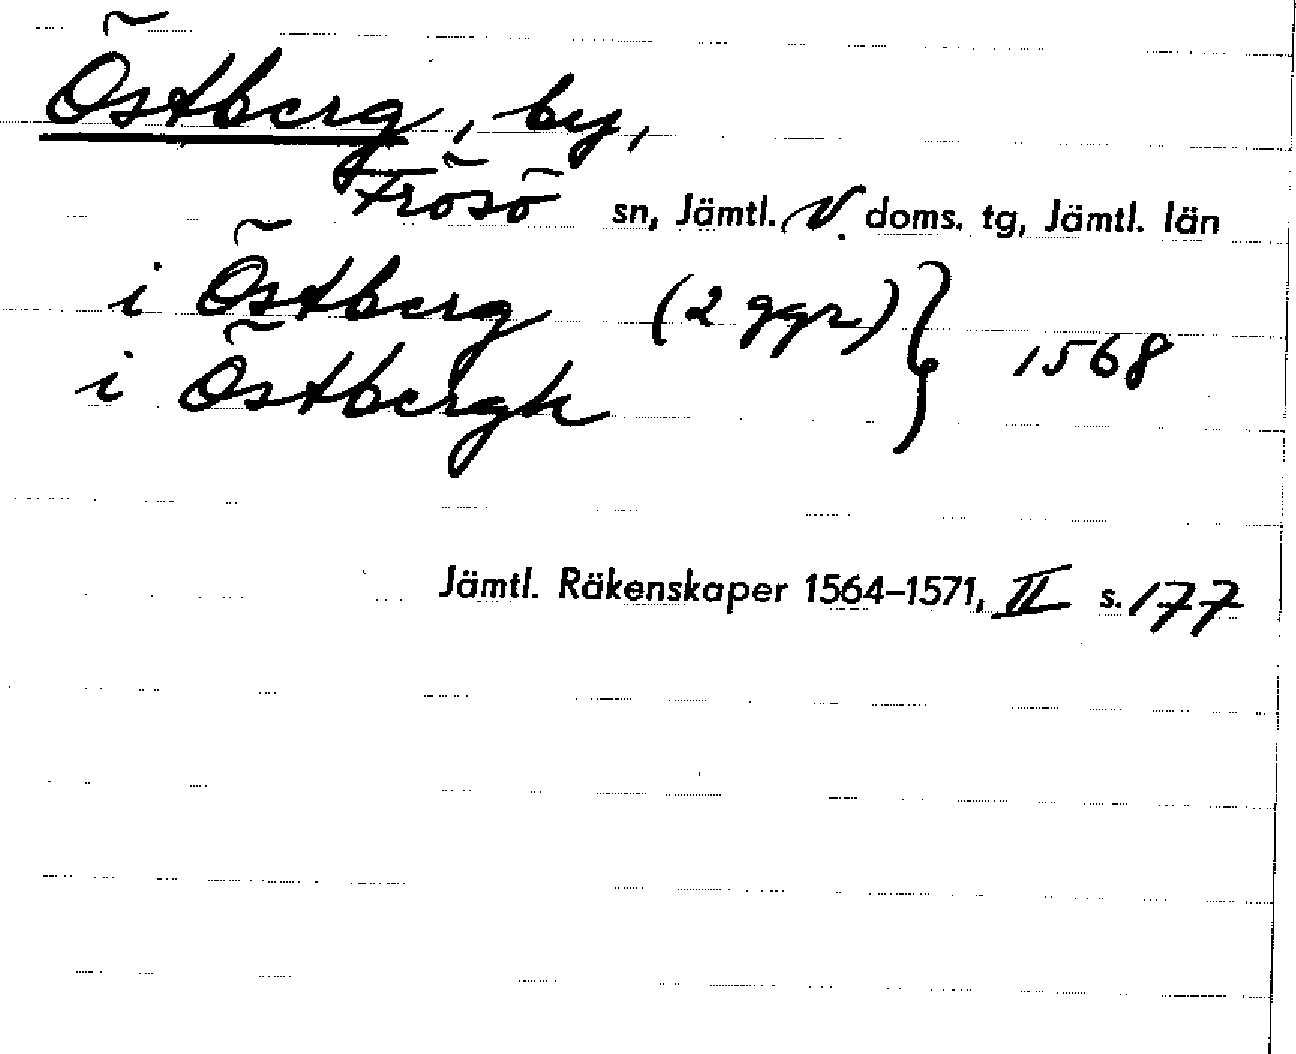 Östberg, by,
Frösö sn, Jämtl. V. doms. tg, Jämtl. län
i Östberg (2 ggr) } 1568
i Östbergh
Jämtl. Räkenskaper 1564–1571, II s. 177